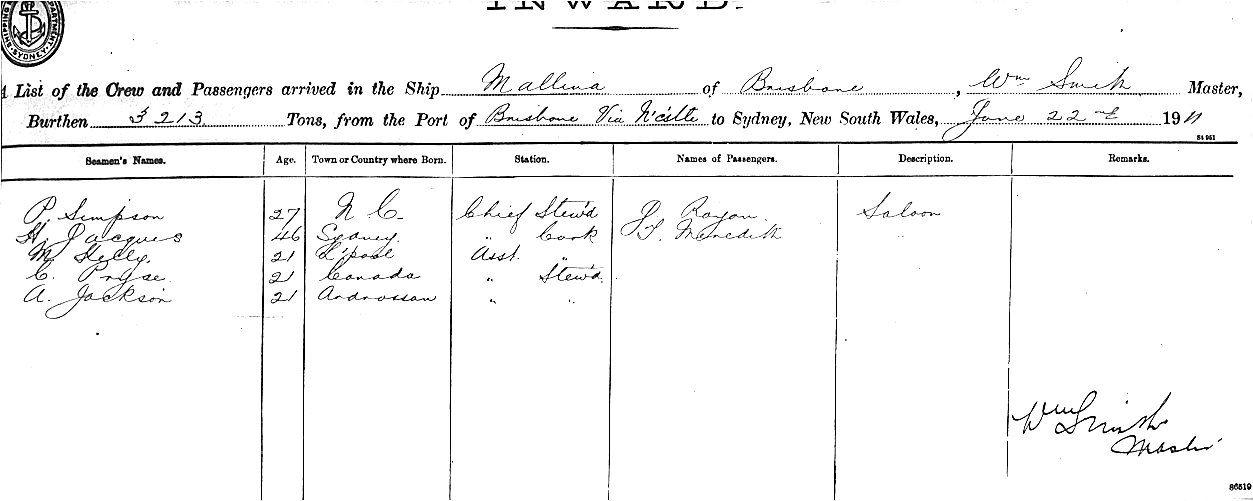 INWARD.
SHIPPING DEPARTMENT SYDNEY
List of the Crew and Passengers arrived in the Ship Mallina of Brisbane, Wm Smith Master,
Burthen 3213 Tons, from the Port of Brisbane Via N'cstle to Sydney, New South Wales, June 22nd 1911
84 951
Seamen's Names. Age. Town or Country where Born. Station. Names of Passengers. Description. Remarks.
P. Simpson 27 N C. Chief Stew'd J. Rogan. Saloon
H. Jacques 46 Sydney. " Cook J. Meredith "
M. Kelly. 21 L'pool Asst. "
C. Pryse. 21 Canada " Stew'd.
A. Jackson 21 Ardrossan " "
Wm Smith
Master
86519